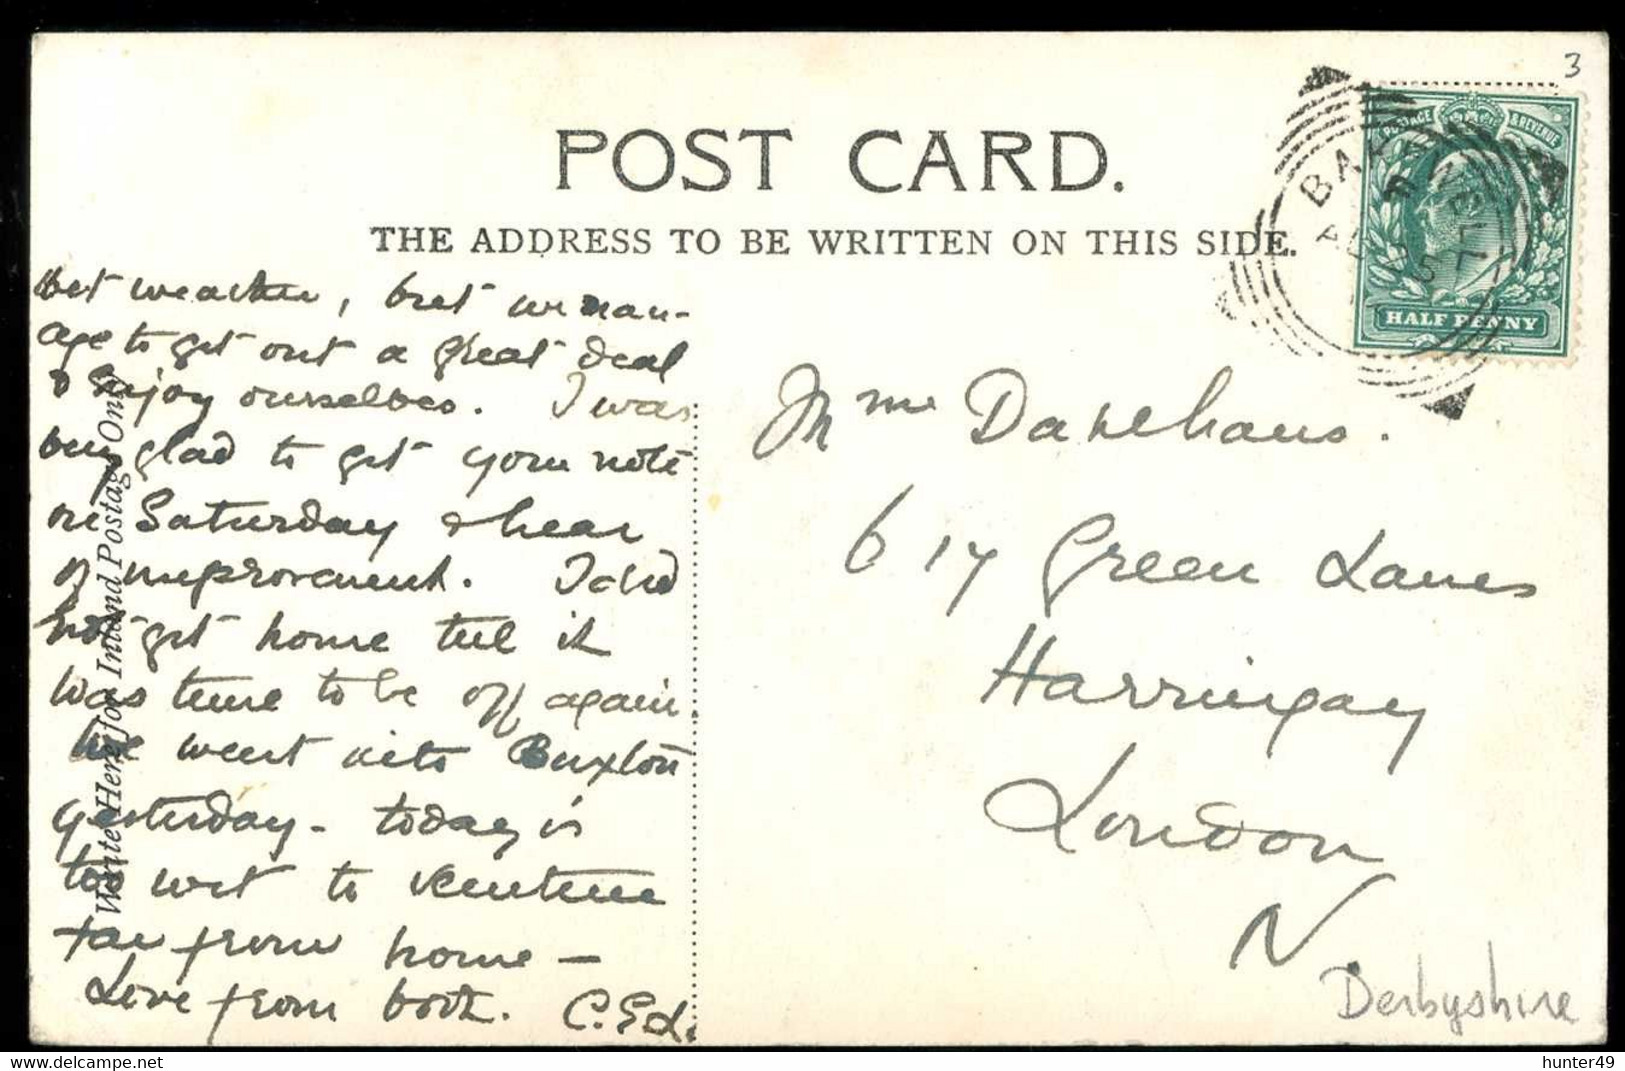 3
POST CARD.
THE ADDRESS TO BE WRITTEN ON THIS SIDE.
POSTAGE & REVENUE
HALF PENNY
BAKEWELL
AU
5
Write Here for Inland Postage Only
Wet weather, but we man-
age to get out a great deal
& enjoy ourselves. I was
very glad to get your note
on Saturday & hear
of improvement. I did
not get home till it
was time to be off again.
We went into Buxton
yesterday - today is
too wet to venture
far from home -
Love from both. C.Ed.
Mme
617 Green Lanes
Harringay
London
N.
Derbyshire
hunter49